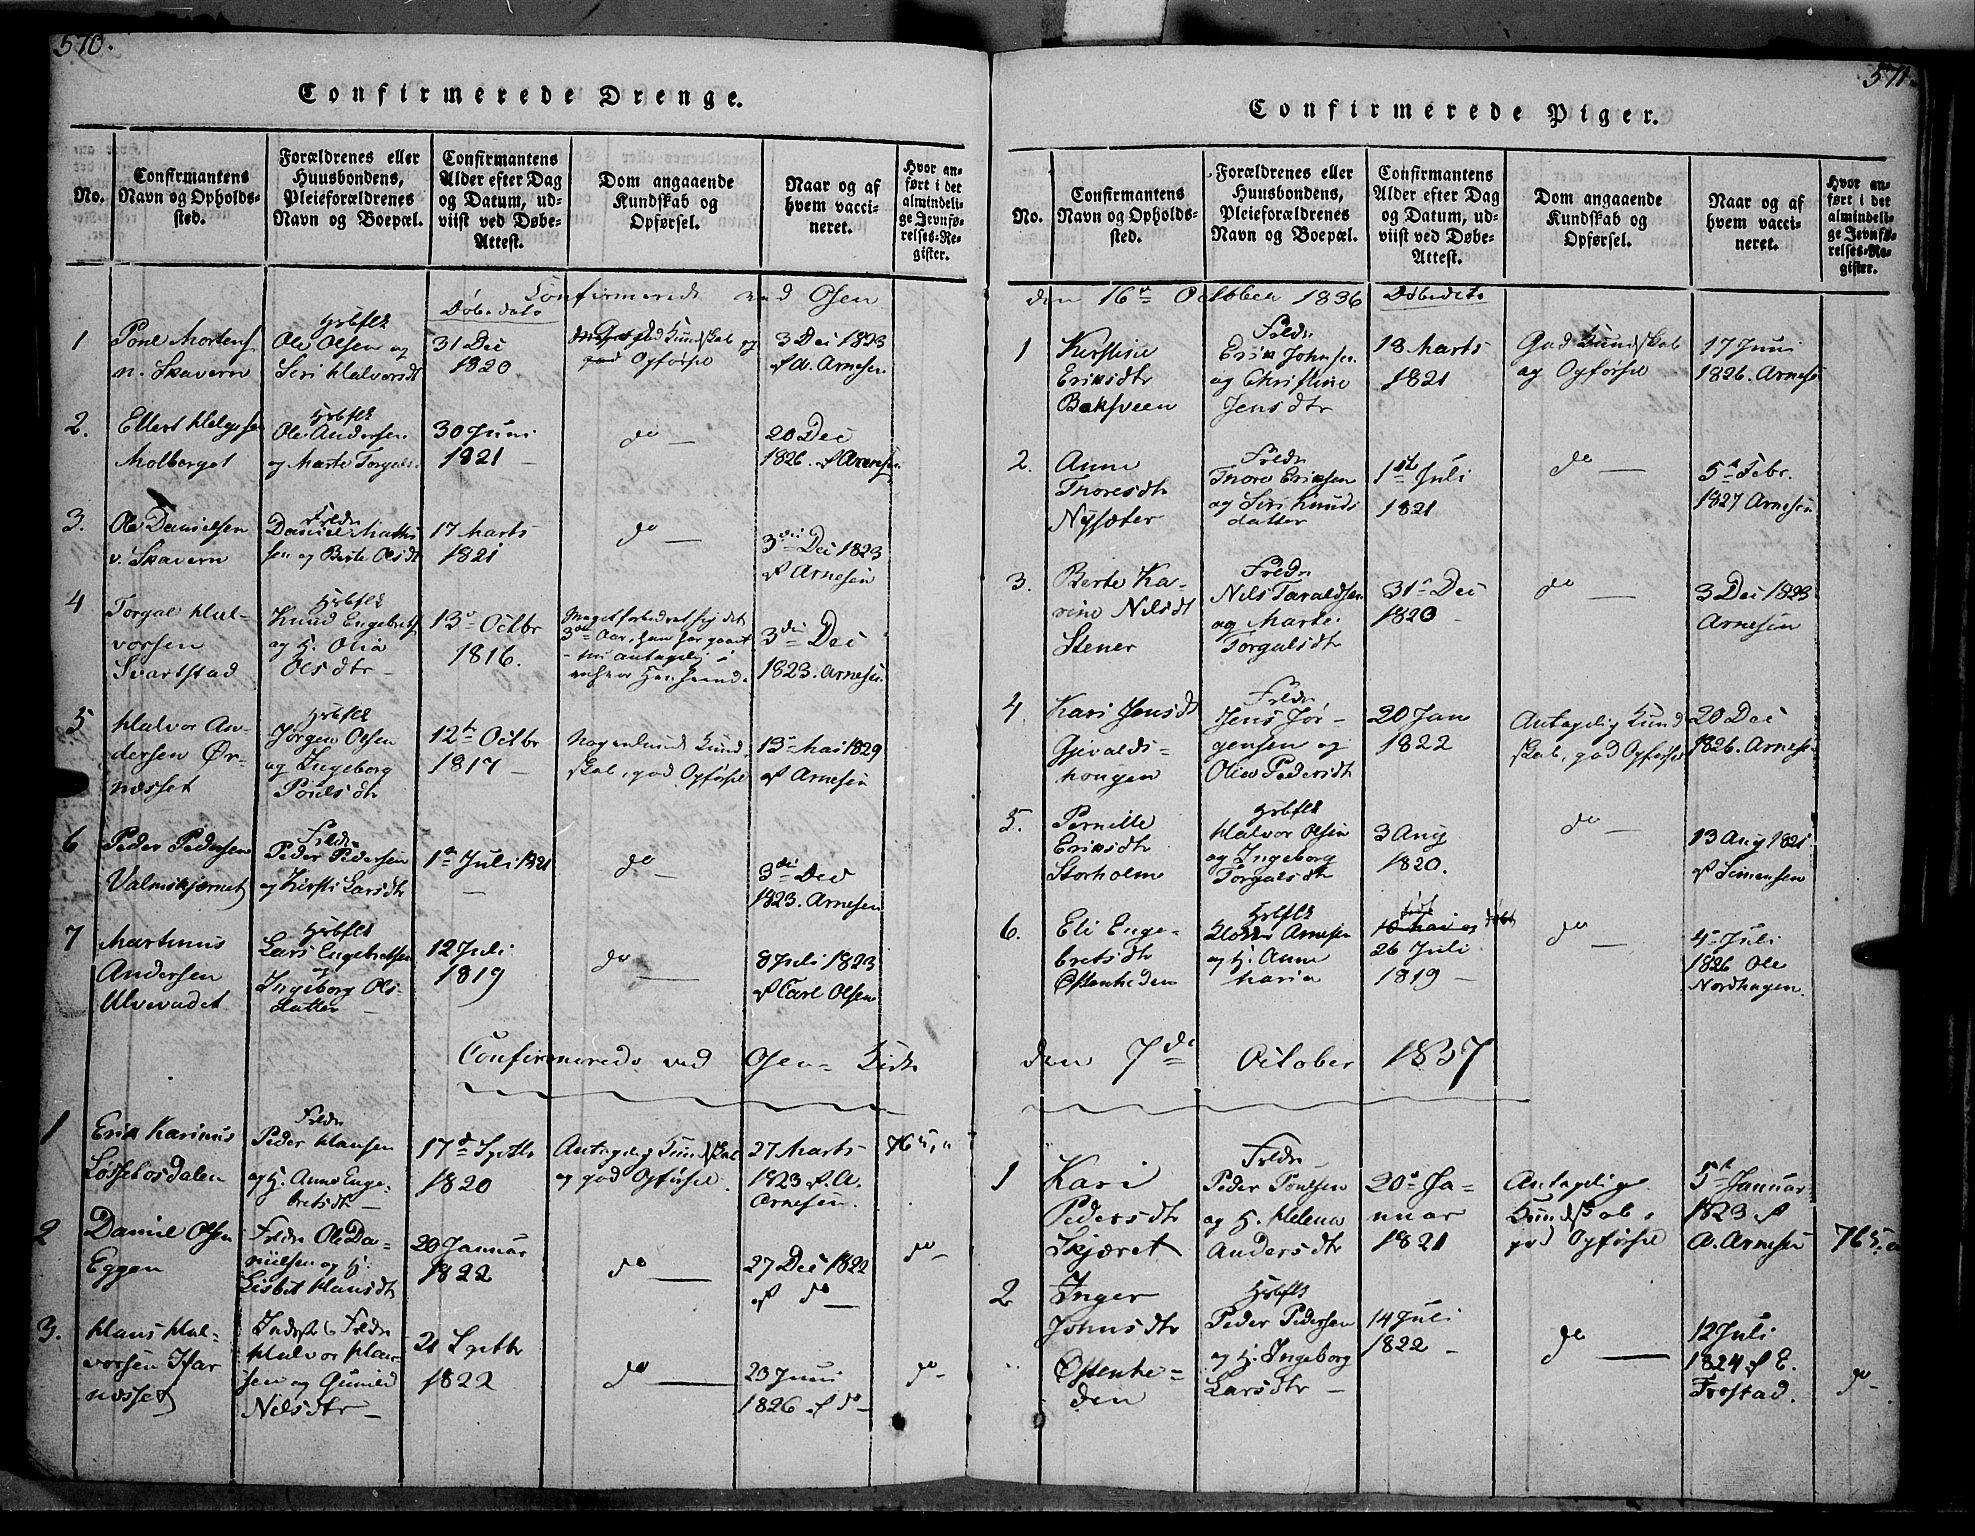 570.
Confirmerede Drenge.
No.
Confirmantens
Navn og Opholds-
sted.
Forældrenes eller
Huusbondens,
Pleieforældrenes
Navn og Boepæl.
Confirmantens
Alder efter Dag
og Datum, ud-
viist ved Døbe-
Attest.
Dom angaaende
Kundskab og
Opførsel.
Naar og af
hvem vacci-
neret.
Hvor an-
ført i det
almindeli-
ge Jevnfø-
relses-Re-
gister.
Confirmerede ved Osen
Døbedato
1
Poul Mortens
n. Skavern
Hsbflk
Ole Olsen og
Siri Halvorsdt
31 Dec
1820
god Kundskab og
god Opførsel
3 Dec 1823
af A. Arnesen
2.
Ellert Helgesen
Molberget
Hsbflk
Ole Andersen
og Marte Torgals.
30 Juni
1821 –
do —
20 Dec
1826. af Arnesen
3.
Ole Danielsen
v. Skavern
Frldr
Daniel Mathi
sen og Berte Olsdt
17 Marts
1821
do —
3die Dec 1823
af Arnesen
4
Torgal Hal-
vorsen
Svartstad
Hsbflk
Knud Engebrets
og H. Olia
Olsdtr –
13de Octbr
1816.
Meget forbedret sig det
3die Aar, han har gaaet
- nu antagelig i
3die Dec
1823. Arnesen
5
Halvor An-
dersen Ør-
næsset
Hsbflk
Jørgen Olsen
og Ingeborg
Poulsdtr
12te Octbr
1817 –
Nogenlunde Kund
skab, god Opførsel
13de Mai 1829
af Arnesen
6
Peder Pedersen
Valmskjærnet
Frldr
Peder Pedersen
og Kirsti Larsdtr
1ste Juli 1821
–
do —
3die Dec
1823. Arnesen
7
Martinus
Andersen
Ulvevadet
Hsbflk
Lars Engebretsen
og
Ingeborg Ols-
datter –
12 Juli
1819
do —
8 Juli 1823
af Carl Olsen
Confirmerede ved Osen Kirke
1
Erik Karinus
Løssetosdalen
Frldr
Peder Hansen
og H. Anne Enge-
bretsdtr –
17de Septbr
1820
Antagelig Kundskab
og god Opførsel.
27 Marts
1823 af A.
Arnesen.
765,"
2
Daniel Olsen
Eggen
Frldre Ole Da-
nielsen og H.
Lisbet Hansdt
20 Januar
1822
do —
27 Dec 1822
af do —
do-
3.
Hans Hal-
vorsen Har
næsset
Frldre
Halvor Han-
sen og Gunild
Nilsdtr –
21 Septbr
1822
do —
23 Juni
1826 af do –
do-
571.
Confirmerede Piger.
No.
Confirmantens
Navn og Opholds-
sted.
Forældrenes eller
Huusbondens,
Pleieforældrenes
Navn og Boepæl.
Confirmantens
Alder efter Dag
og Datum, ud-
viist ved Døbe-
Attest.
Dom angaaende
Kundskab og
Opførsel.
Naar og af
hvem vacci-
neret.
Hvor an-
ført i det
almindeli-
ge Jevnfø-
relses-Re-
gister.
den 16de October 1836
Døbedato
1
Kirstine
Eriksdtr
Baksveen
Frldr
Erik Johnsen
og Christine
Jensdtr
18 Marts
1821
God Kundskab
og Opførsel
17 Juni
1826. Arnesen
2.
Anne
Thoresdtr
Nysæter
Frldr
Thore Eriksen
og Siri Knuds
datter
1ste Juli
1821
do —
5te Febr.
1827 Arnesen
3.
Berte Ka-
rine Nilsdt
Stener
Frldr
Nils Taraldsen
og Marte
Torgalsdtr
31te Dec
1820 –
do —
3 Dec 1823
Arnesen
4
Kari Jensdt
Gjevalds-
hougen
Frldr
Jens Jør-
gensen og
Olea Pedersdt
20 Jan
1822
Antagelig Kund
skab, god Opførsel
20 Dec
1826. Arnesen
5.
Pernille
Eriksdtr
Storholme
Hsbflk
Halvor Olsen
og Ingeborg
Torgalsdtr
3 Aug
1820.
do —
13 Aug 1821
af Simensen
6.
Eli Enge-
bretsdtr
Østenheden
Hsbflk
Arnesen
og H. Anne
Maria
født
10 Mai og døbt
26 Juli
1819 –
do —
4de Juli
1826 Ole
Nordhagen.
den 7de October 1837
1
Kari
Pedersdtr
Skjæret
Frldr
Peder Poulsen
og H. Helena
Andersdtr
20de Ja-
nuar
1821
Antagelig
Kundskab,
god Opførsel
5te Januar
1823 af
A. Arnesen
765,"
2
Inger
Johnsdtr
Østenhe-
den
Hsbflk
Peder Pedersen
og H. Ingeborg
Larsdtr –
14 Juli
1822 –
do —
12 Juli
1824 af E.
Trostad.
do-